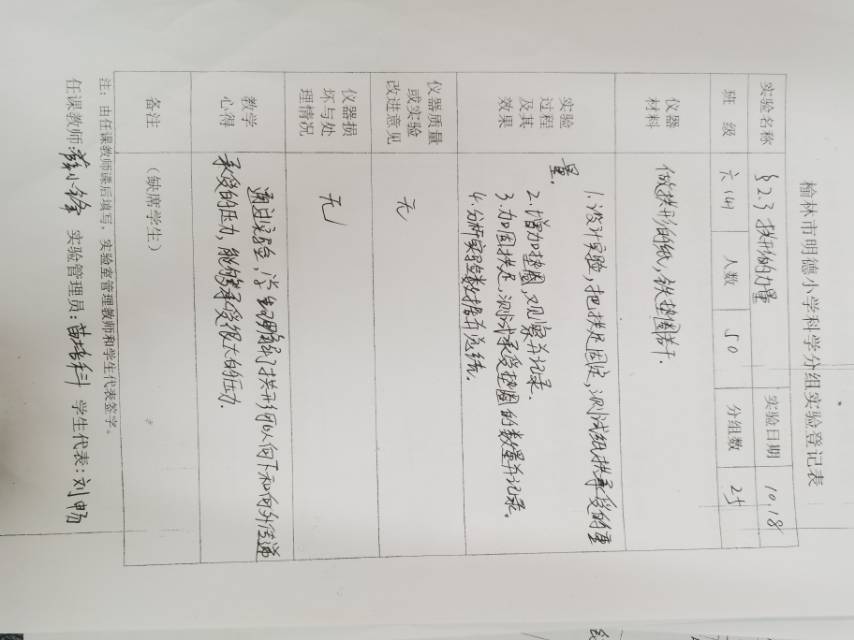 榆林市明德小学科学分组实验登记表
实验名称 §2.3 拱形的力量 实验日期 10.18
班级 六(4) 人数 50 分组数 25
仪器材料 做拱形的纸,铁垫圈若干.
实验过程及其效果
1.设计实验,把拱足固定,测试纸拱承受的重
量.
2.增加垫圈,观察并记录.
3.加固拱足,测试承受垫圈的数量并记录.
4.分析实验数据并总结.
仪器质量或实验改进意见 无
仪器损坏与处理情况 无
教学心得
通过实验,学生明白了拱形可以向下和向外传递
承受的压力,能够承受很大的压力.
备注 (缺席学生)
注:由任课教师课后填写,实验室管理教师和学生代表签字。
任课教师: 实验管理员: 学生代表:刘畅